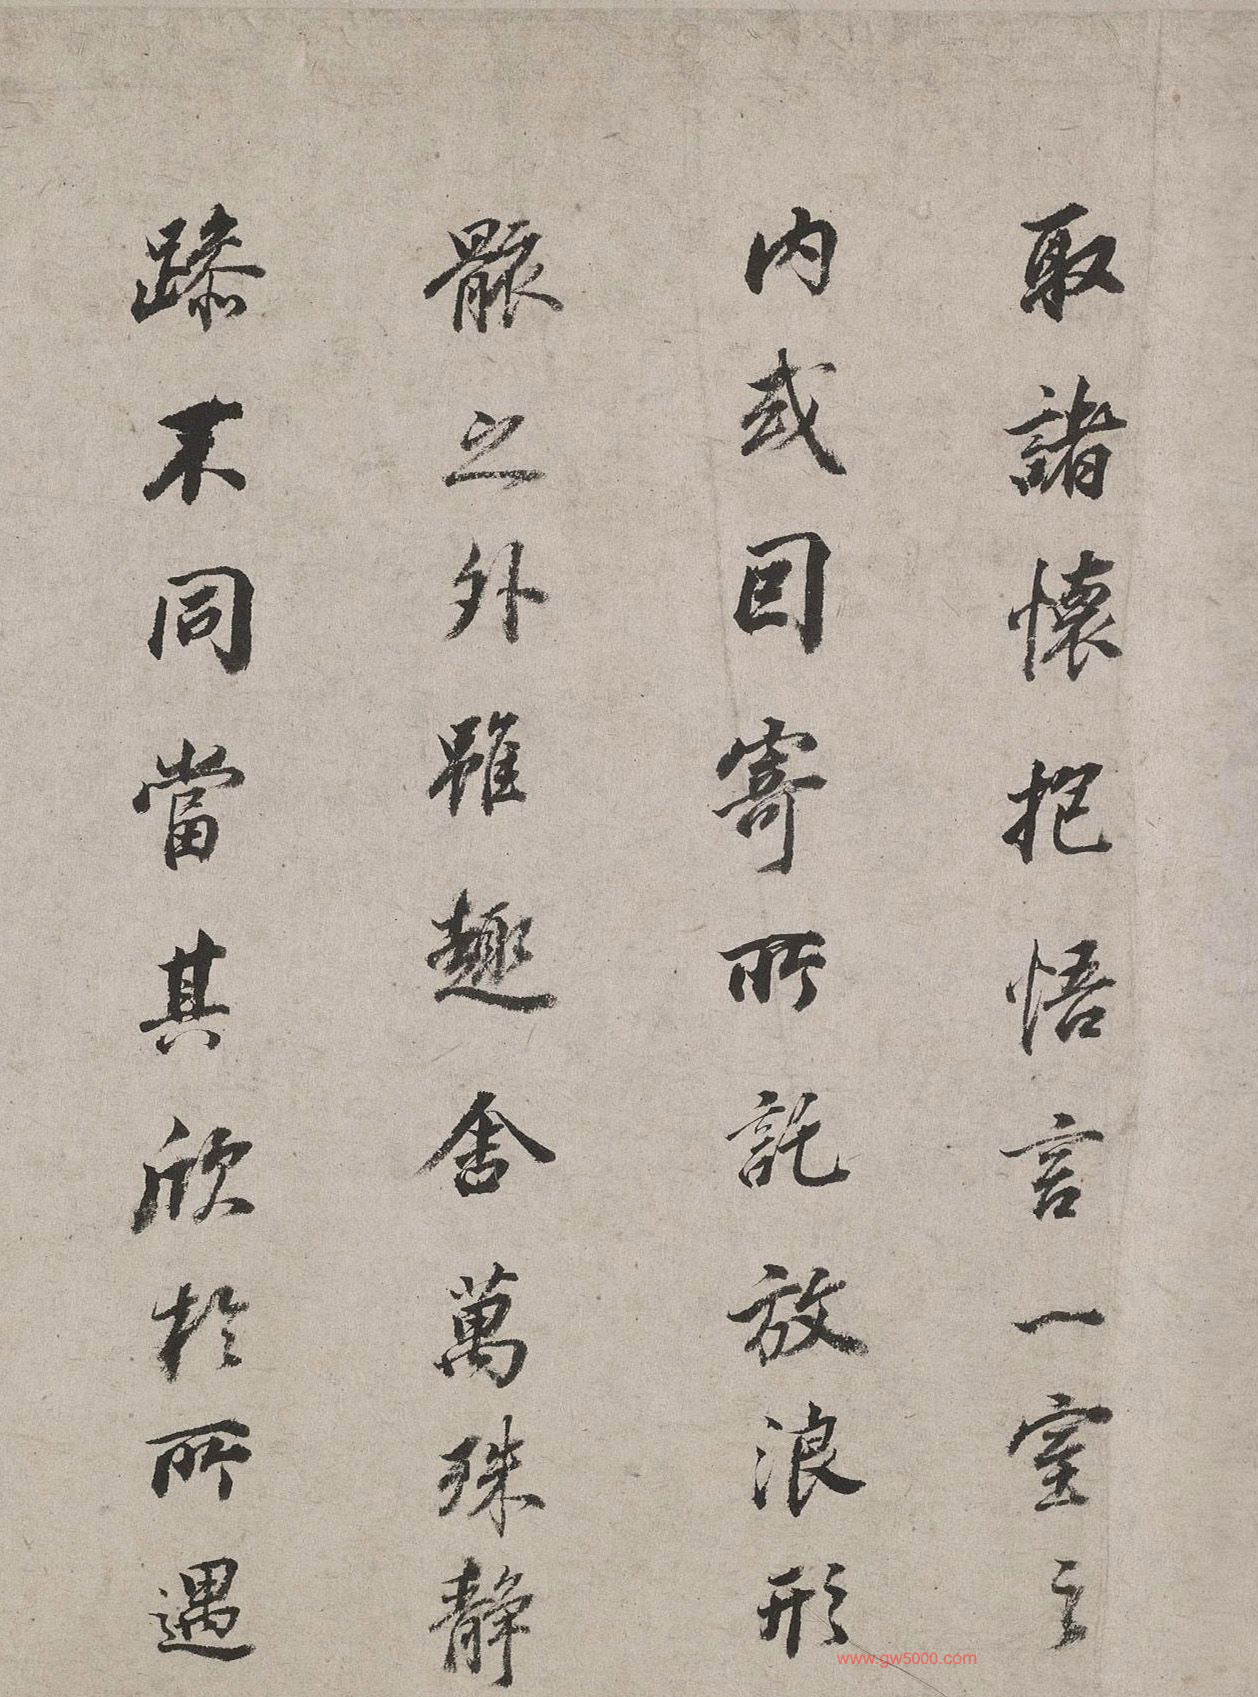 取諸懷抱悟言一室之
内或因寄所託放浪形
骸之外雖趣舍萬殊静
躁不同當其欣於所遇
www.gw5000.com